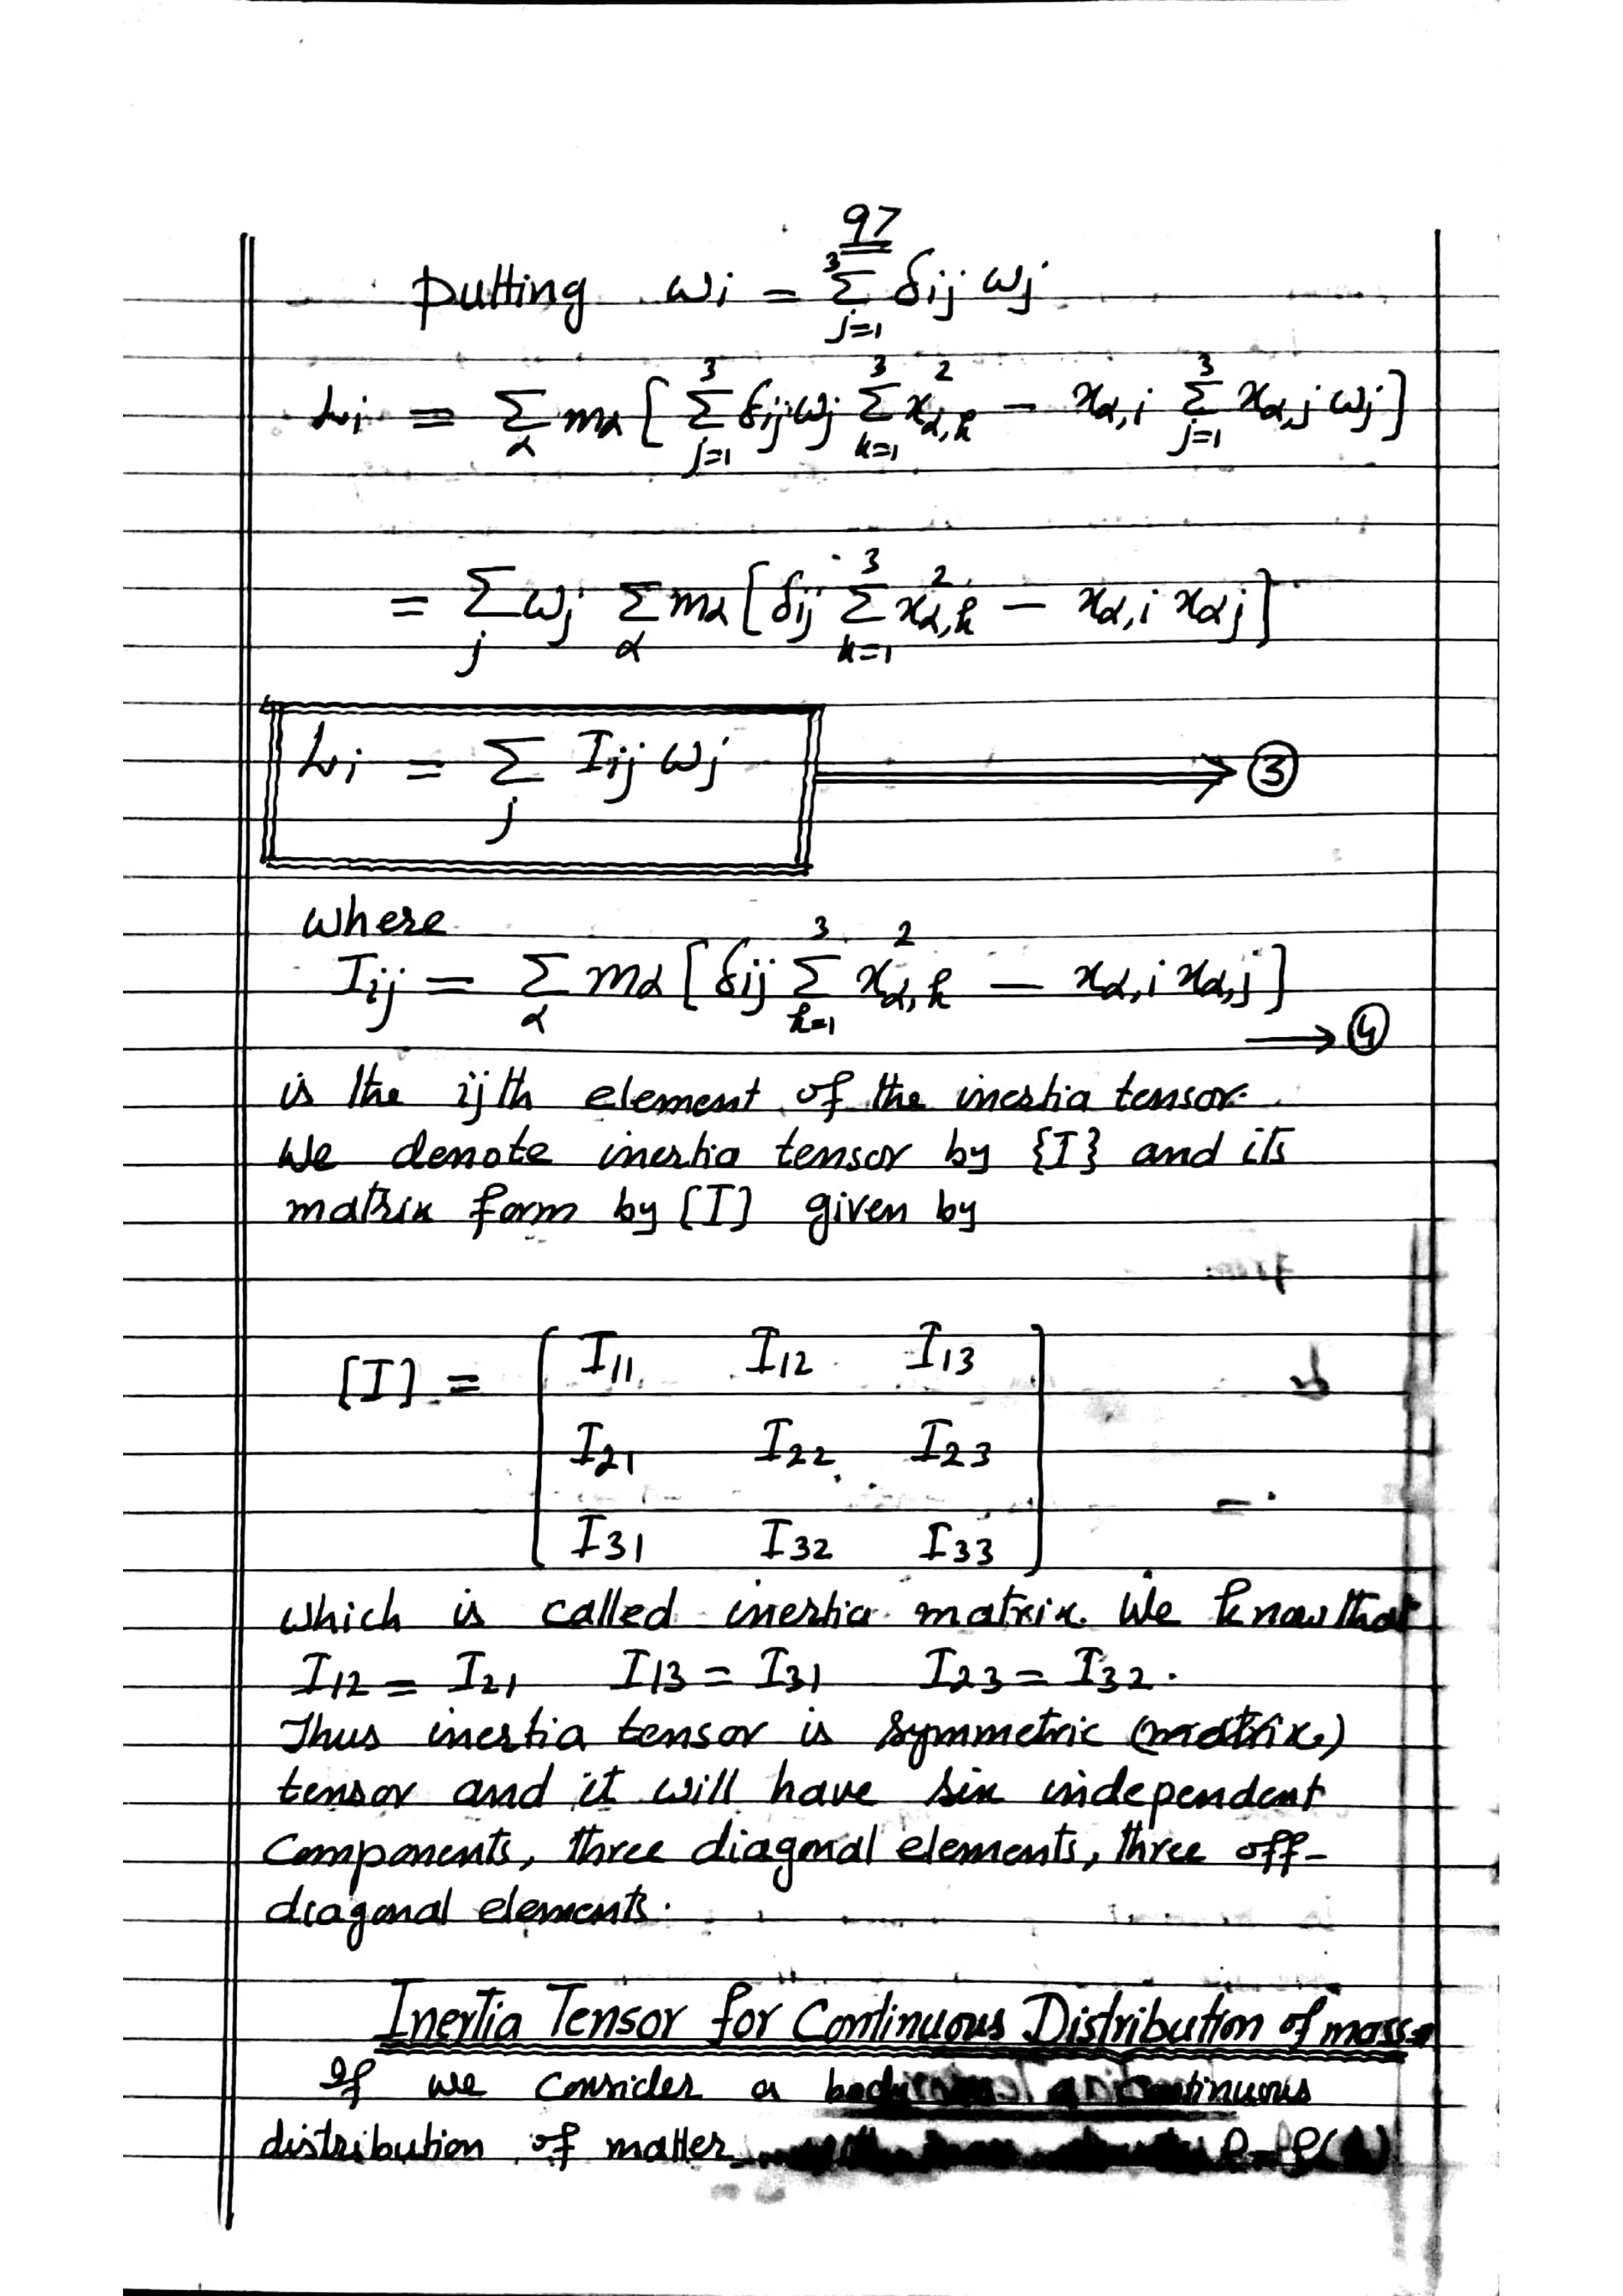 97
putting ωi = 3Σj=1 δij ωj
Li = Σα mα [ 3Σj=1 δij ωj 3Σk=1 x²α,k − xα,i 3Σj=1 xα,j ωj]
= Σj ωj Σα mα [δij 3Σk=1 x²α,k − xα,i xαj]
Li = Σj Iij ωj → ③
where
Iij = Σα mα [δij 3Σk=1 x²α,k − xα,i xα,j]
→ ④
is the ijth element of the inertia tensor.
We denote inertia tensor by {I} and its
matrix form by [I] given by
[I] = [ I11 I12 I13
I21 I22 I23
I31 I32 I33 ]
which is called inertia matrix. We know that
I12 = I21 I13 = I31 I23 = I32.
Thus inertia tensor is symmetric (matrix)
tensor and it will have six independent
Components, three diagonal elements, three off-
diagonal elements.
Inertia Tensor for Continuous Distribution of mass
If we consider a
distribution of matter